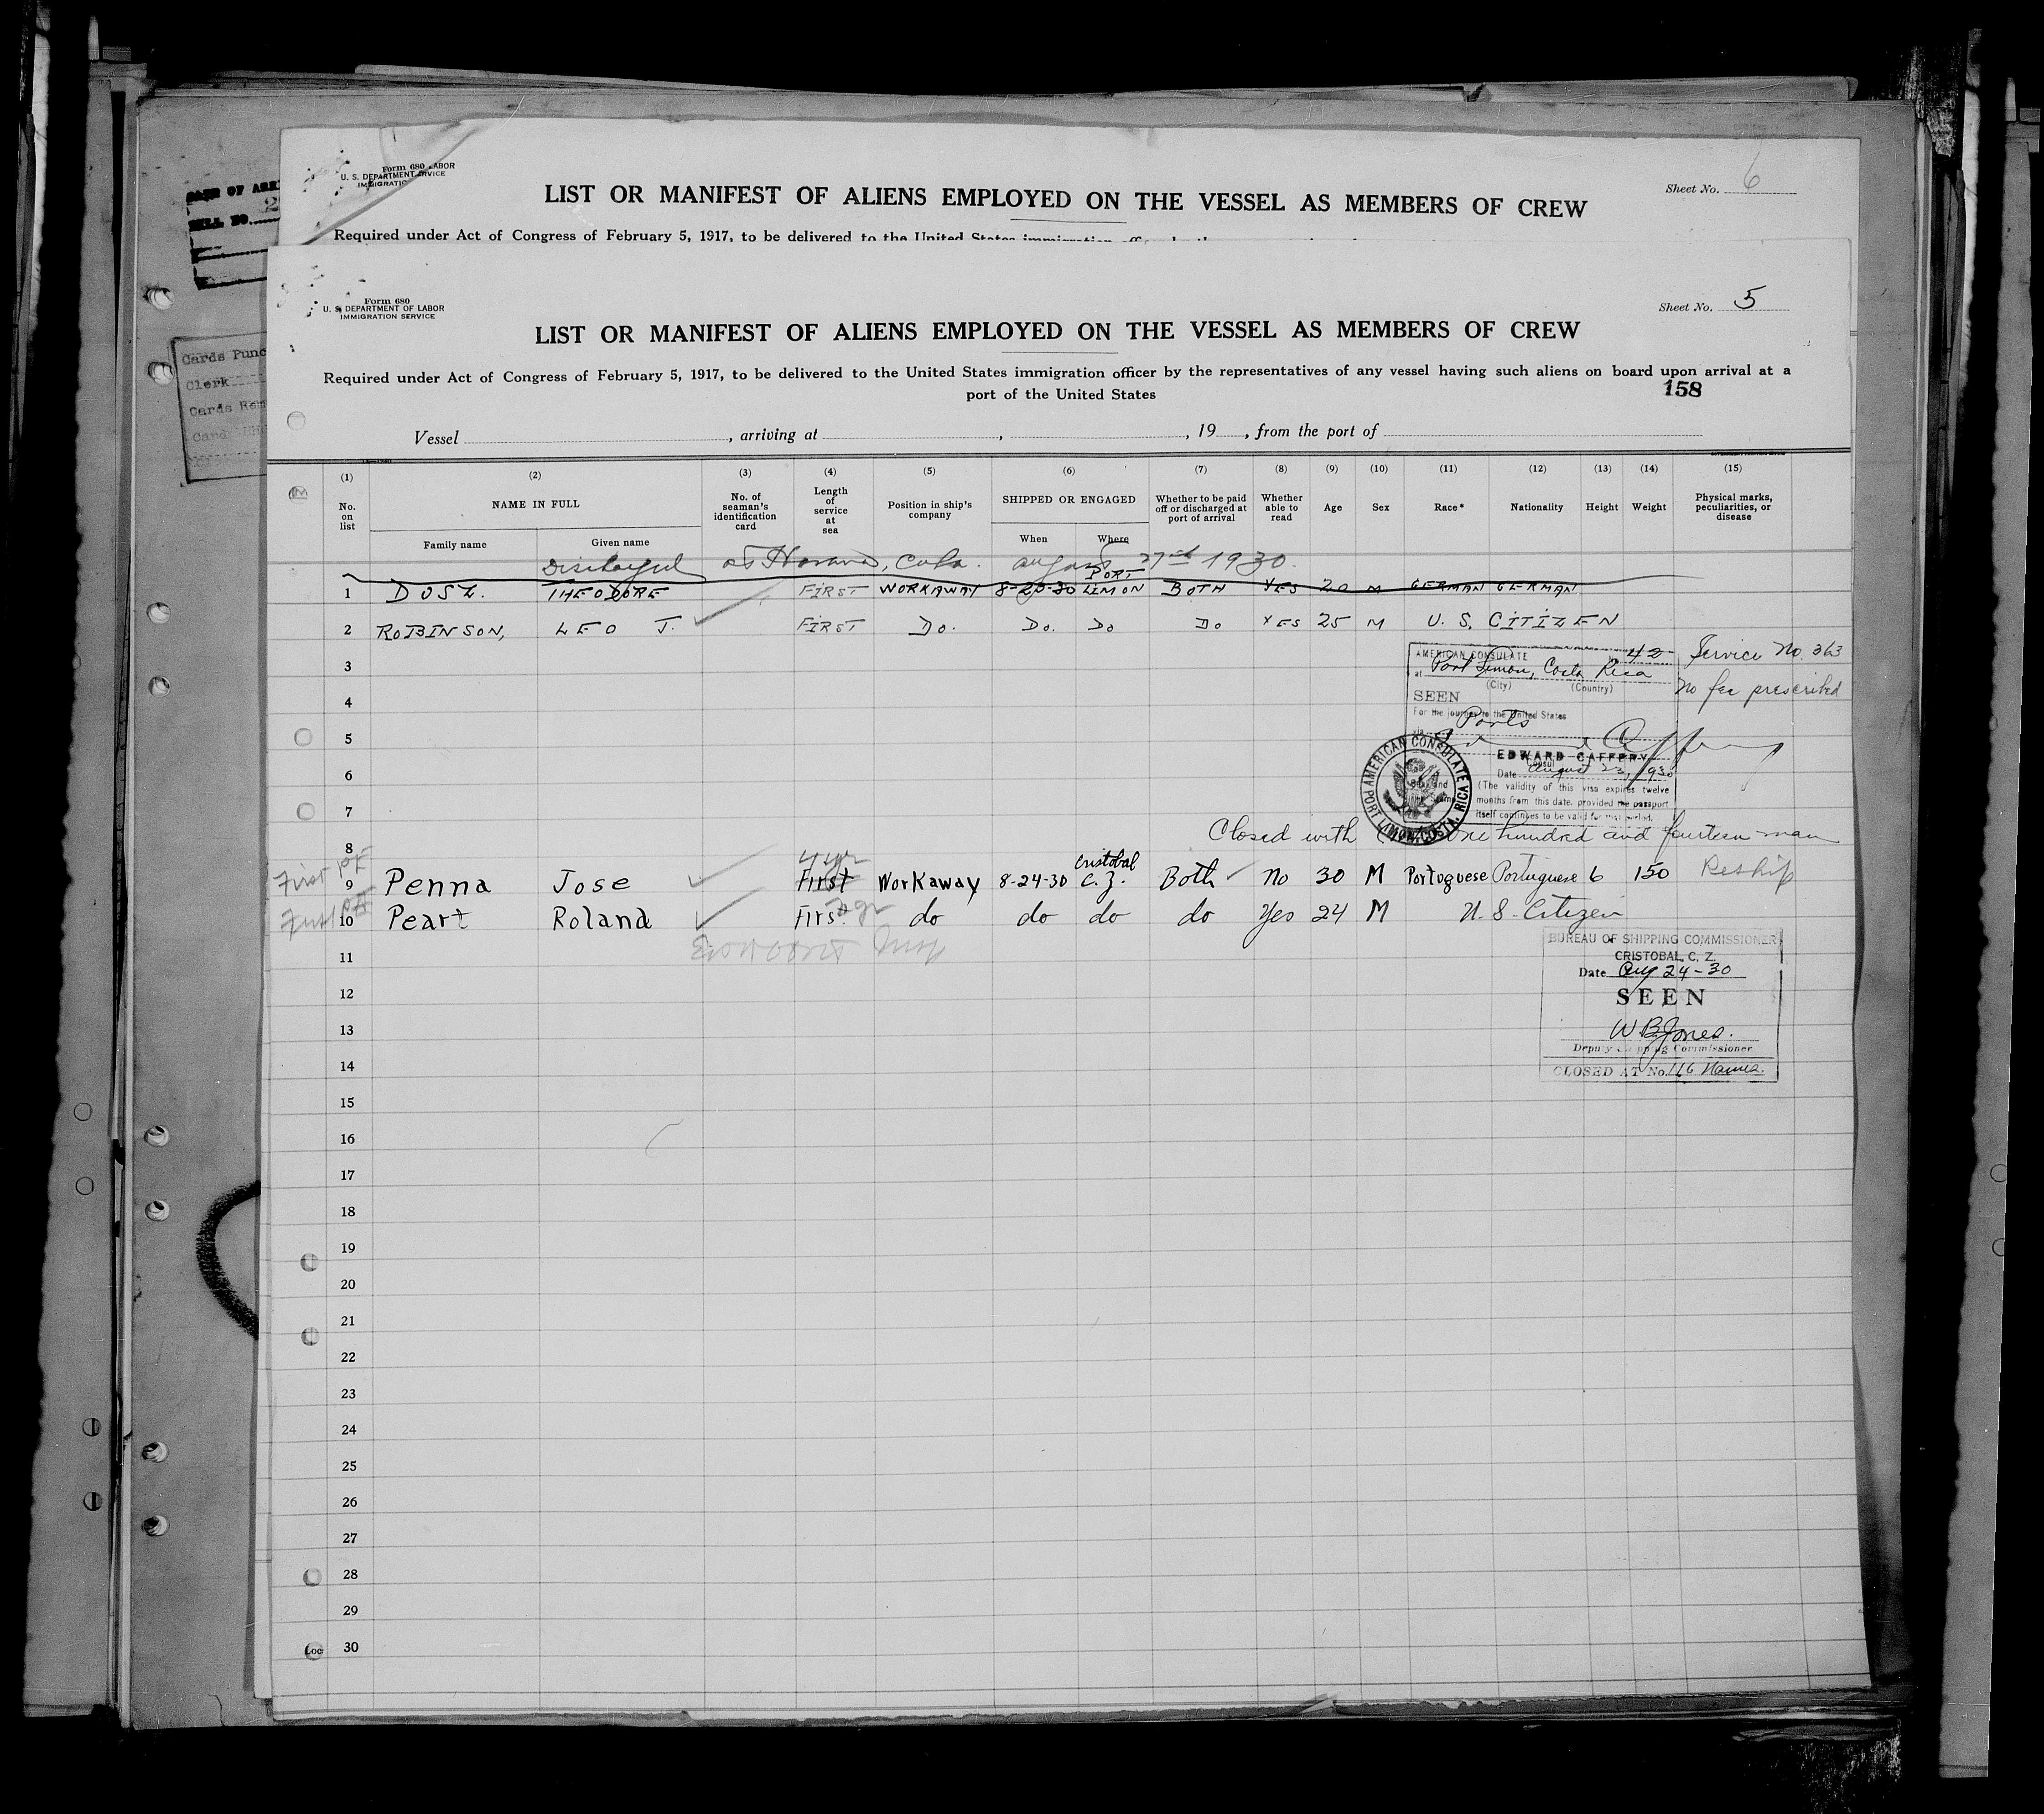 Form 680 LABOR
U. S. DEPARTMENT
IMMIGRATION
Sheet No. 6
LIST OR MANIFEST OF ALIENS EMPLOYED ON THE VESSEL AS MEMBERS OF CREW
Required under Act of Congress of February 5, 1917, to be delivered to the United States immigration
Form 680
U. S. DEPARTMENT OF LABOR
IMMIGRATION SERVICE
Sheet No. 5
LIST OR MANIFEST OF ALIENS EMPLOYED ON THE VESSEL AS MEMBERS OF CREW
Required under Act of Congress of February 5, 1917, to be delivered to the United States immigration officer by the representatives of any vessel having such aliens on board upon arrival at a
port of the United States
158
Cards Punc
Clerk
Cards
Vessel , arriving at , , 19 , from the port of
(1) (2) (3) (4) (5) (6) (7) (8) (9) (10) (11) (12) (13) (14) (15)
No. on list NAME IN FULL No. of seaman's identification card Length of service at sea Position in ship's company SHIPPED OR ENGAGED Whether to be paid off or discharged at port of arrival Whether able to read Age Sex Race* Nationality Height Weight Physical marks, peculiarities, or disease
Family name Given name When Where
at Havana, Cuba. August 27 1930.
1 DOSZ. THEODORE FIRST WORKAWAY 8-23-30 PORT LIMON BOTH YES 20 M GERMAN GERMAN
2 ROBINSON, LEO J. FIRST Do. Do. Do Do YES 25 M U. S. CITIZEN
3
AMERICAN CONSULATE 42
at Port Limon, Costa Rica
(City) (Country)
Service No. 363
No fee prescribed
4
SEEN
For the journey to the United States
Ports
5
EDWARD CAFFERY
Consul
6
Date August 23, 1930
(The validity of this visa expires twelve
months from this date, provided the passport
itself continues to be valid for that period.
AMERICAN CONSULATE
PORT LIMON, COSTA RICA
7
Closed with One hundred and fourteen man
8
First
9 Penna Jose First Workaway 8-24-30 Cristobal C.Z. Both No 30 M Portuguese Portuguese 6 150 Reship
10 Peart Roland First do do do do Yes 24 M U. S. Citizen
11
BUREAU OF SHIPPING COMMISSIONER
CRISTOBAL, C. Z.
Date Aug 24-30
12
SEEN
13
W B Jones.
Deputy Shipping Commissioner
14
CLOSED AT No. 116 Names.
15
16
17
18
19
20
21
22
23
24
25
26
27
28
29
30